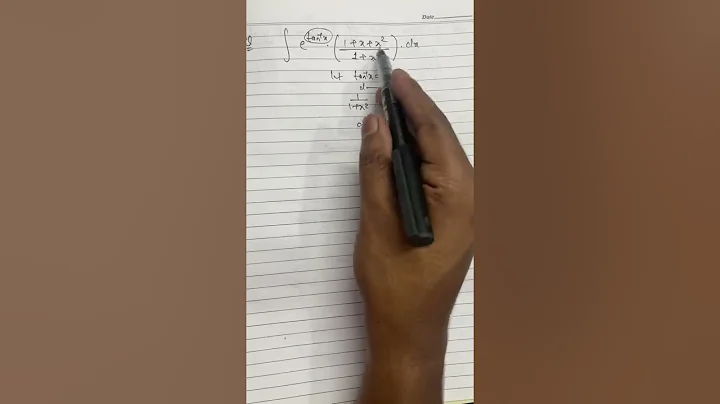 Date
∫ e^tan⁻¹x · (1 + x + x² / 1 + x) · dx
let tan⁻¹x =
d
1 / 1+x²